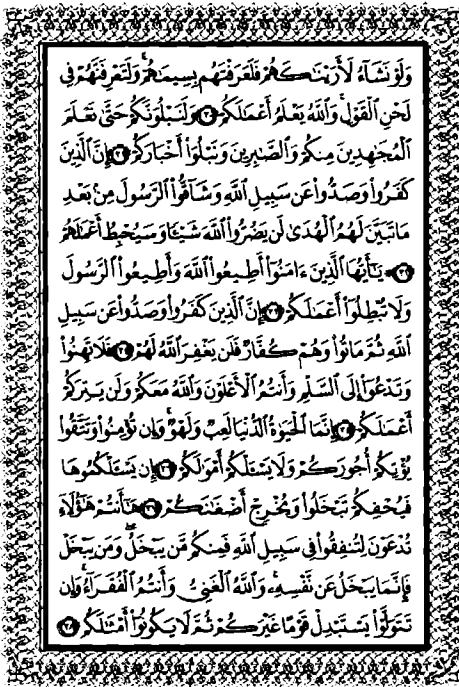 وَلَوْ نَشَآءُ لَأَرَيْنَٰكَهُمْ فَلَعَرَفْتَهُم بِسِيمَٰهُمْ ۚ وَلَتَعْرِفَنَّهُمْ فِى
لَحْنِ ٱلْقَوْلِ ۚ وَٱللَّهُ يَعْلَمُ أَعْمَٰلَكُمْ ٣٠ وَلَنَبْلُوَنَّكُمْ حَتَّىٰ نَعْلَمَ
ٱلْمُجَٰهِدِينَ مِنكُمْ وَٱلصَّٰبِرِينَ وَنَبْلُوَا۟ أَخْبَارَكُمْ ٣١ إِنَّ ٱلَّذِينَ
كَفَرُوا۟ وَصَدُّوا۟ عَن سَبِيلِ ٱللَّهِ وَشَآقُّوا۟ ٱلرَّسُولَ مِنۢ بَعْدِ
مَا تَبَيَّنَ لَهُمُ ٱلْهُدَىٰ لَن يَضُرُّوا۟ ٱللَّهَ شَيْـًٔا وَسَيُحْبِطُ أَعْمَٰلَهُمْ
٣٢ يَٰٓأَيُّهَا ٱلَّذِينَ ءَامَنُوٓا۟ أَطِيعُوا۟ ٱللَّهَ وَأَطِيعُوا۟ ٱلرَّسُولَ
وَلَا تُبْطِلُوٓا۟ أَعْمَٰلَكُمْ ٣٣ إِنَّ ٱلَّذِينَ كَفَرُوا۟ وَصَدُّوا۟ عَن سَبِيلِ
ٱللَّهِ ثُمَّ مَاتُوا۟ وَهُمْ كُفَّارٌ فَلَن يَغْفِرَ ٱللَّهُ لَهُمْ ٣٤ فَلَا تَهِنُوا۟
وَتَدْعُوٓا۟ إِلَى ٱلسَّلْمِ وَأَنتُمُ ٱلْأَعْلَوْنَ وَٱللَّهُ مَعَكُمْ وَلَن يَتِرَكُمْ
أَعْمَٰلَكُمْ ٣٥ إِنَّمَا ٱلْحَيَوٰةُ ٱلدُّنْيَا لَعِبٌ وَلَهْوٌ ۚ وَإِن تُؤْمِنُوا۟ وَتَتَّقُوا۟
يُؤْتِكُمْ أُجُورَكُمْ وَلَا يَسْـَٔلْكُمْ أَمْوَٰلَكُمْ ٣٦ إِن يَسْـَٔلْكُمُوهَا
فَيُحْفِكُمْ تَبْخَلُوا۟ وَيُخْرِجْ أَضْغَٰنَكُمْ ٣٧ هَٰٓأَنتُمْ هَٰٓؤُلَآءِ
تُدْعَوْنَ لِتُنفِقُوا۟ فِى سَبِيلِ ٱللَّهِ فَمِنكُم مَّن يَبْخَلُ ۖ وَمَن يَبْخَلْ
فَإِنَّمَا يَبْخَلُ عَن نَّفْسِهِۦ ۚ وَٱللَّهُ ٱلْغَنِىُّ وَأَنتُمُ ٱلْفُقَرَآءُ ۚ وَإِن
تَتَوَلَّوْا۟ يَسْتَبْدِلْ قَوْمًا غَيْرَكُمْ ثُمَّ لَا يَكُونُوٓا۟ أَمْثَٰلَكُم ٣٨